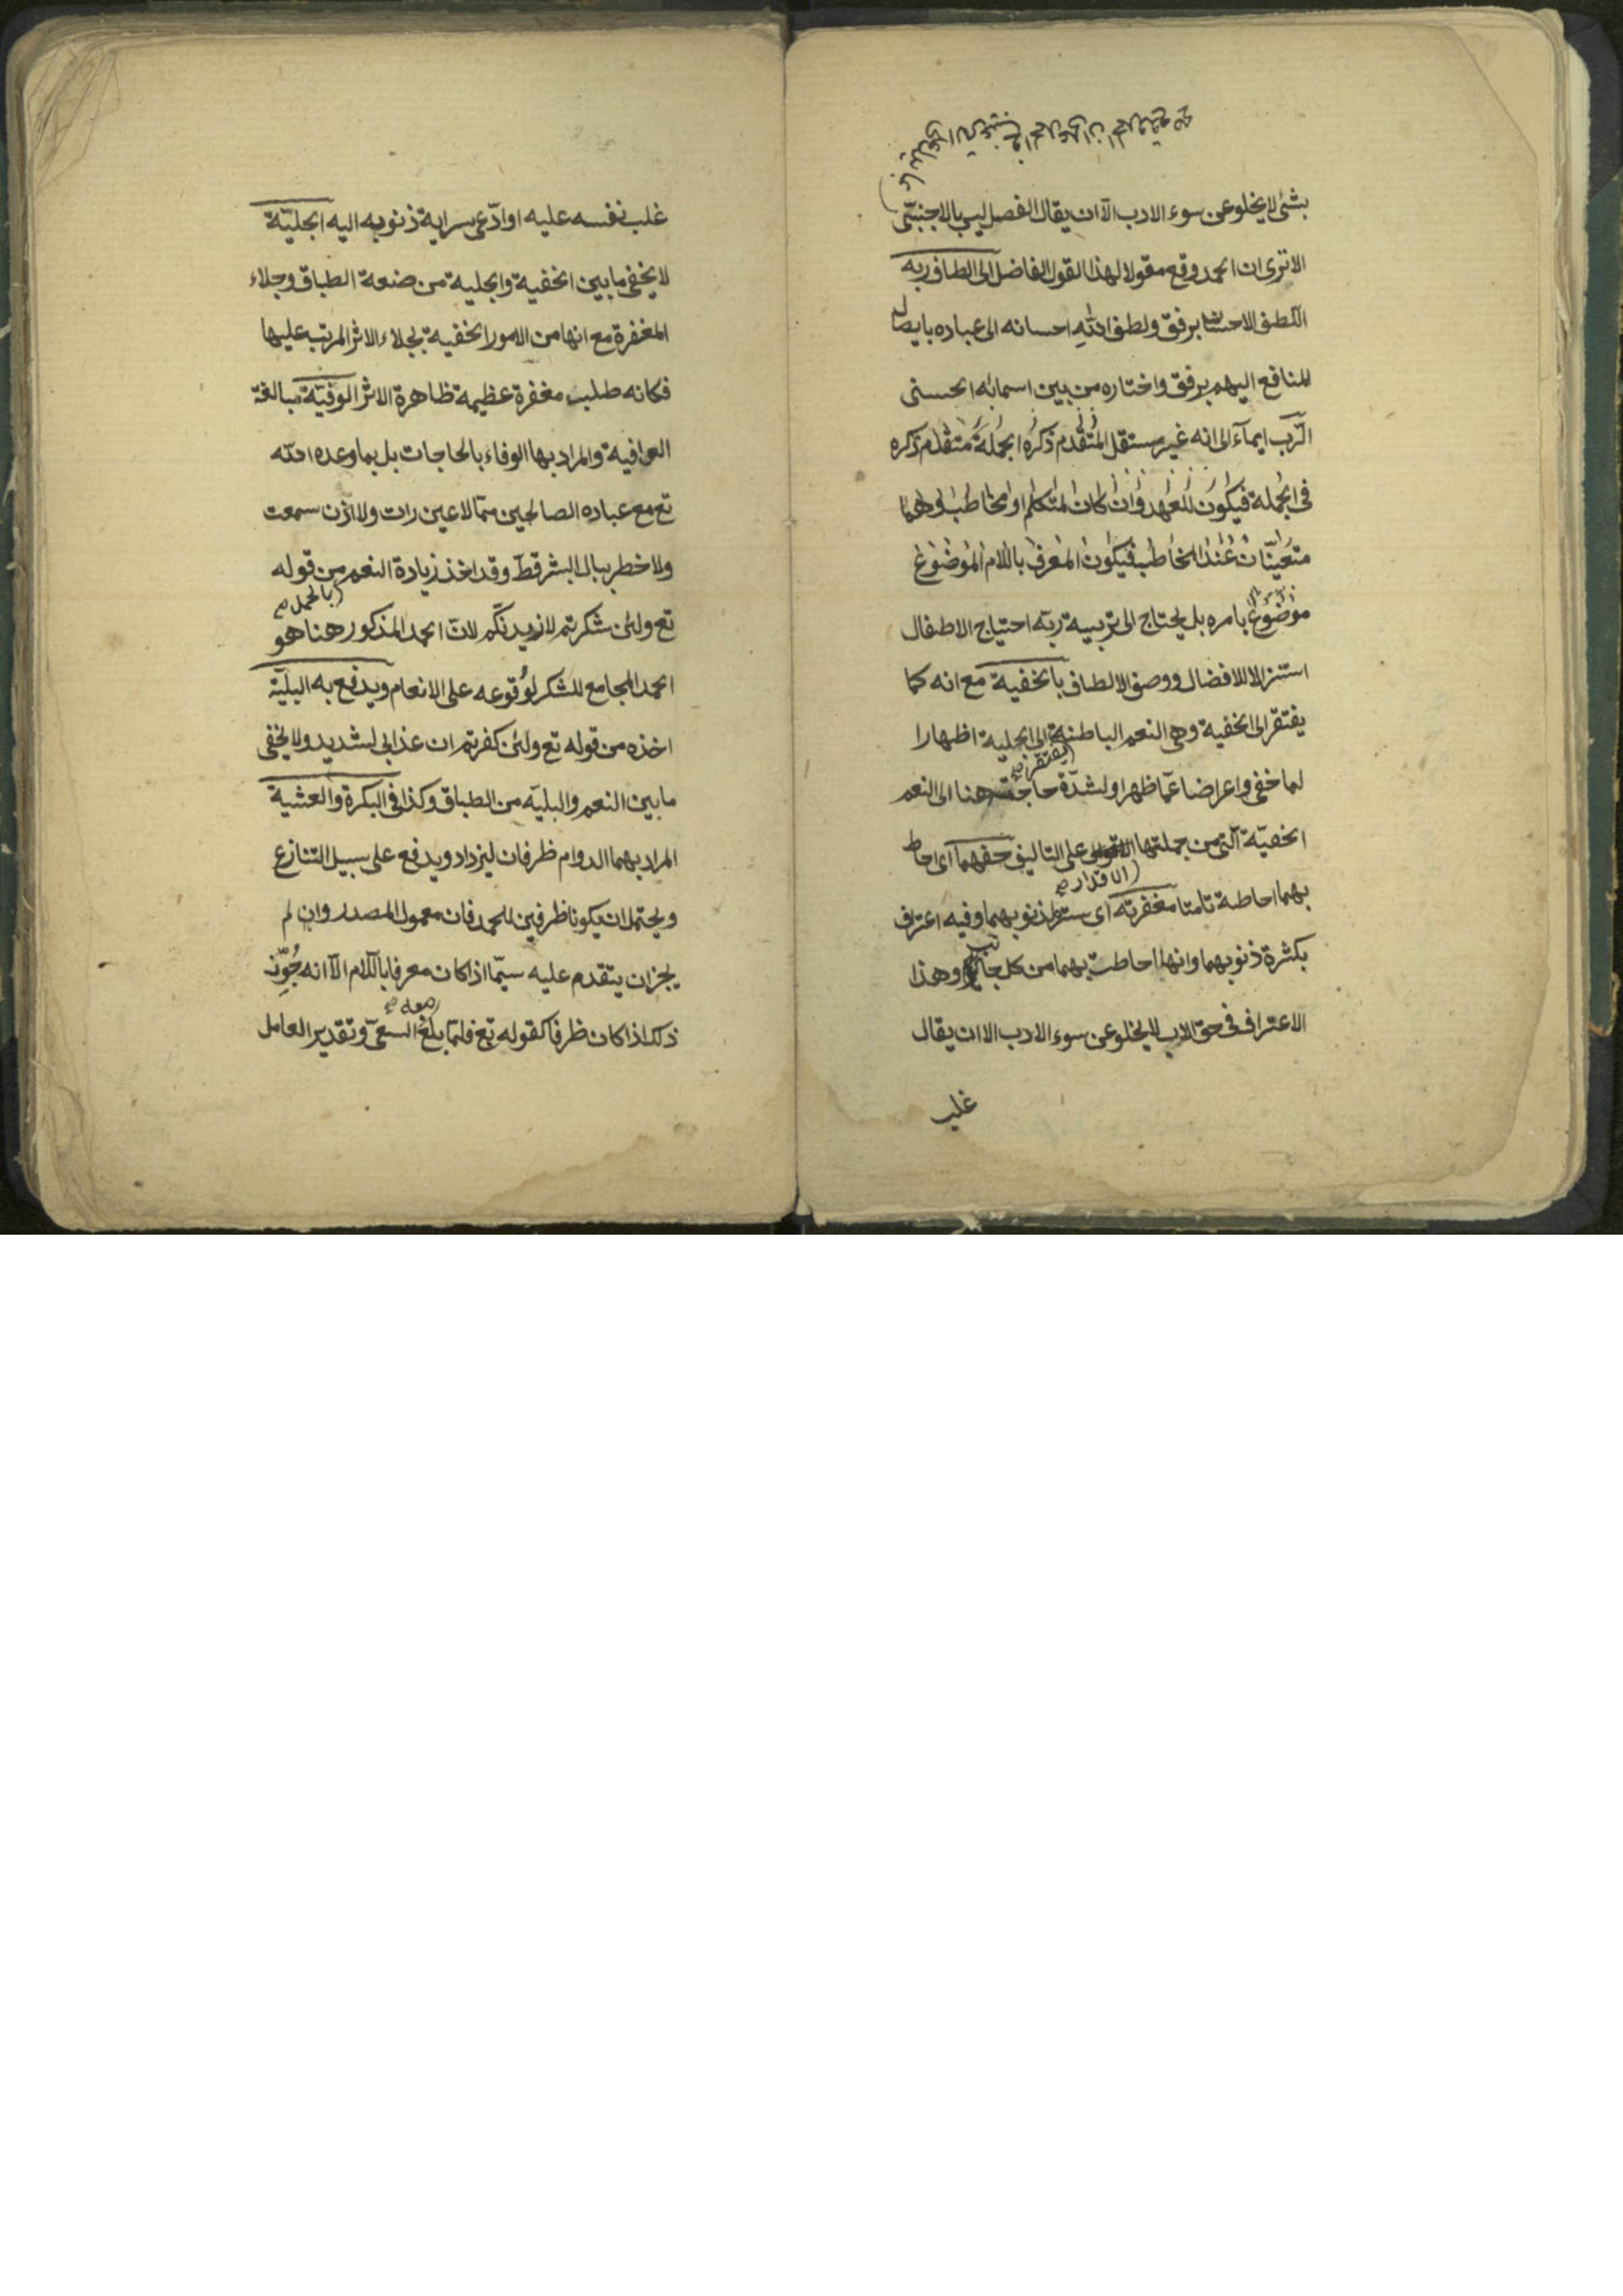 بشئ لا يخلو عن سوء الادب الّا ان يقال الفصل ليس بالاجنبىّ
الا ترى ان الحمد وقع مقولا لهذا القول الفاضل الى الطاف ربه
اللطف الاحسان برفق ولطف الله احسانه الى عباده بايصال
المنافع اليهم برفق واختاره من بين اسمائه الحسنى
الرّب ايماءً الى انه غير مستقل المتقدم ذكره الجملة متقدم ذكره
فى الجملة فيكون للعهد وان كان المتكلم او مخاطب وهما
متعيّنان عند المخاطب فيكون المعرف باللام الموضوع
موضوع بامره بل يحتاج الى تربية ربّه احتياج الاطفال
استنزالا للافضال ووصف الالطاف بالخفية مع انه كما
يفتقر الى الخفية وهى النعم الباطنة الى الجلية اظهارا
لما خفى واعراضا عمّا ظهر او لشدّة حاجته هنا الى النعم
(يفتقر صح
الخفيّة الّتى من جملتها على التاليف حفهما اى احاط
(الاقدار صح
بهما احاطة تامّتا مغفرته اى ستر لذنوبهما وفيه اعتراف
بكثرة ذنوبهما وانها احاطت بهما من كل جانب وهذا
الاعتراف فى حق الاب لا يخلو عن سوء الادب الا ان يقال
غلب
غلب نفسه عليه او ادّعى سراية ذنوبه اليه الجليّة
لا يخفى ما بين الخفية والجلية من صنعة الطباق وجلاء
المغفرة مع انها من الامور الخفية بجلاء الاثر المرتب عليها
فكانه طلب مغفرة عظيمة ظاهرة الاثر الوفيّة مبالغة
الوافية والمراد بها الوفاء بالحاجات بل بما وعده الله
تع مع عباده الصالحين ممّا لا عين رات ولا اذن سمعت
ولا خطر ببال البشر قطّ وقد اخذ زيادة النعم من قوله
(بالحمل صح
تع ولئن شكرتم لازيدنّكم لانّ الحمد المذكور هنا هو
الحمد المجامع للشكر لوقوعه على الانعام ويدفع به البليّة
اخذه من قوله تع ولئن كفرتم ان عذابى لشديد ولا يخفى
ما بين النعم والبليّه من الطباق وكذا فى البكرة والعشية
المراد بهما الدوام ظرفان ليزداد ويدفع على سبيل التنازع
ويحتمل ان يكونا ظرفين للحمد فان معمول المصدر وان لم
يجز ان يتقدم عليه سيّما اذا كان معرفا باللام الّا انه جُوِّز
(معه صح
ذلك اذا كان ظرفا كقوله تع فلمّا بلغ السعىَ وتقدير العامل